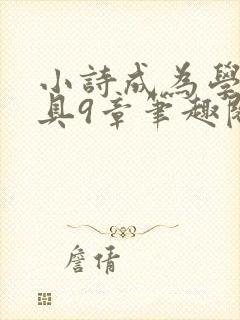 小詩成為學
具9章筆趣閣
詹倩